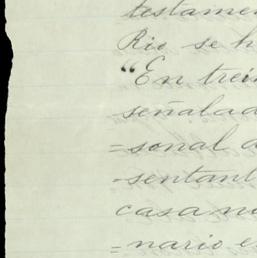 testamen
Rio se h
"En trein
señalad
=sonal a
-sentant
casa no
=nario e